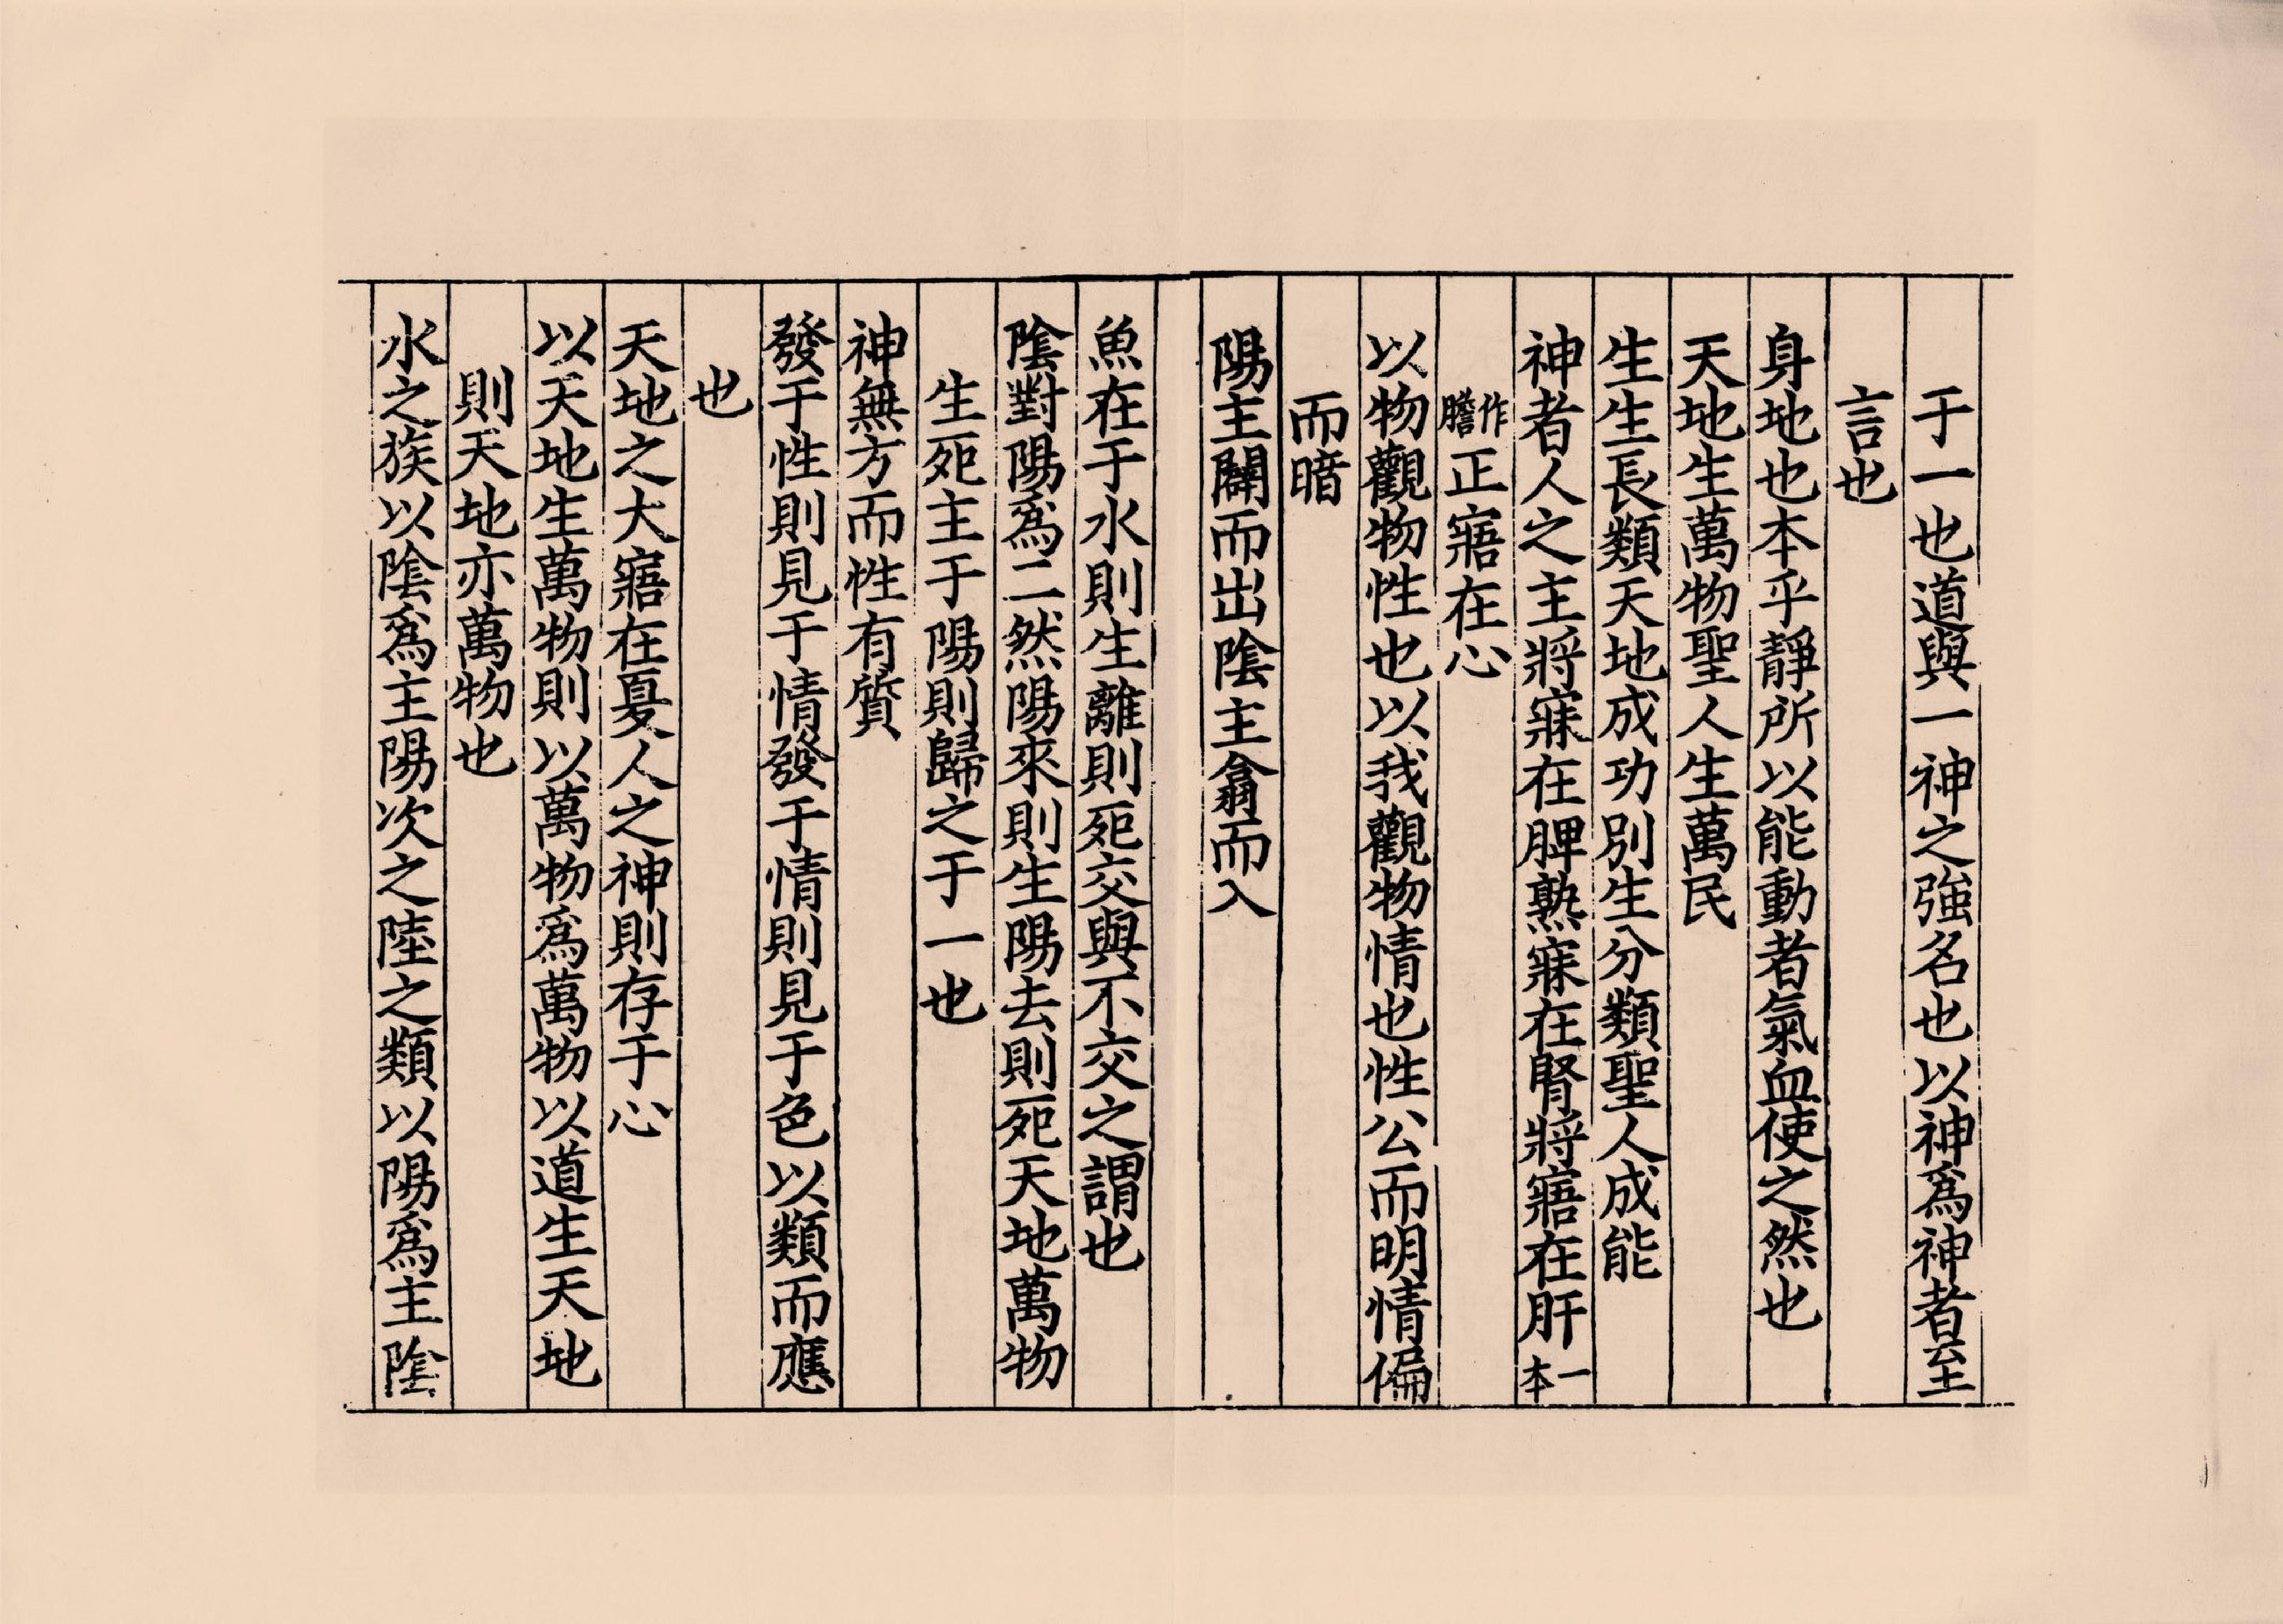 于一也道與一神之強名也以神爲神者至
言也
身地也本乎靜所以能動者氣血使之然也
天地生萬物聖人生萬民
生生長類天地成功別生分類聖人成能
神者人之主將寐在脾熟寐在腎將寤在肝一本
作膽正寤在心
以物觀物性也以我觀物情也性公而明情偏
而暗
陽主闢而出陰主翕而入
魚在于水則生離則死交與不交之謂也
陰對陽爲二然陽來則生陽去則死天地萬物
生死主于陽則歸之于一也
神無方而性有質
發于性則見于情發于情則見于色以類而應
也
天地之大寤在夏人之神則存于心
以天地生萬物則以萬物爲萬物以道生天地
則天地亦萬物也
水之族以陰爲主陽次之陸之類以陽爲主陰